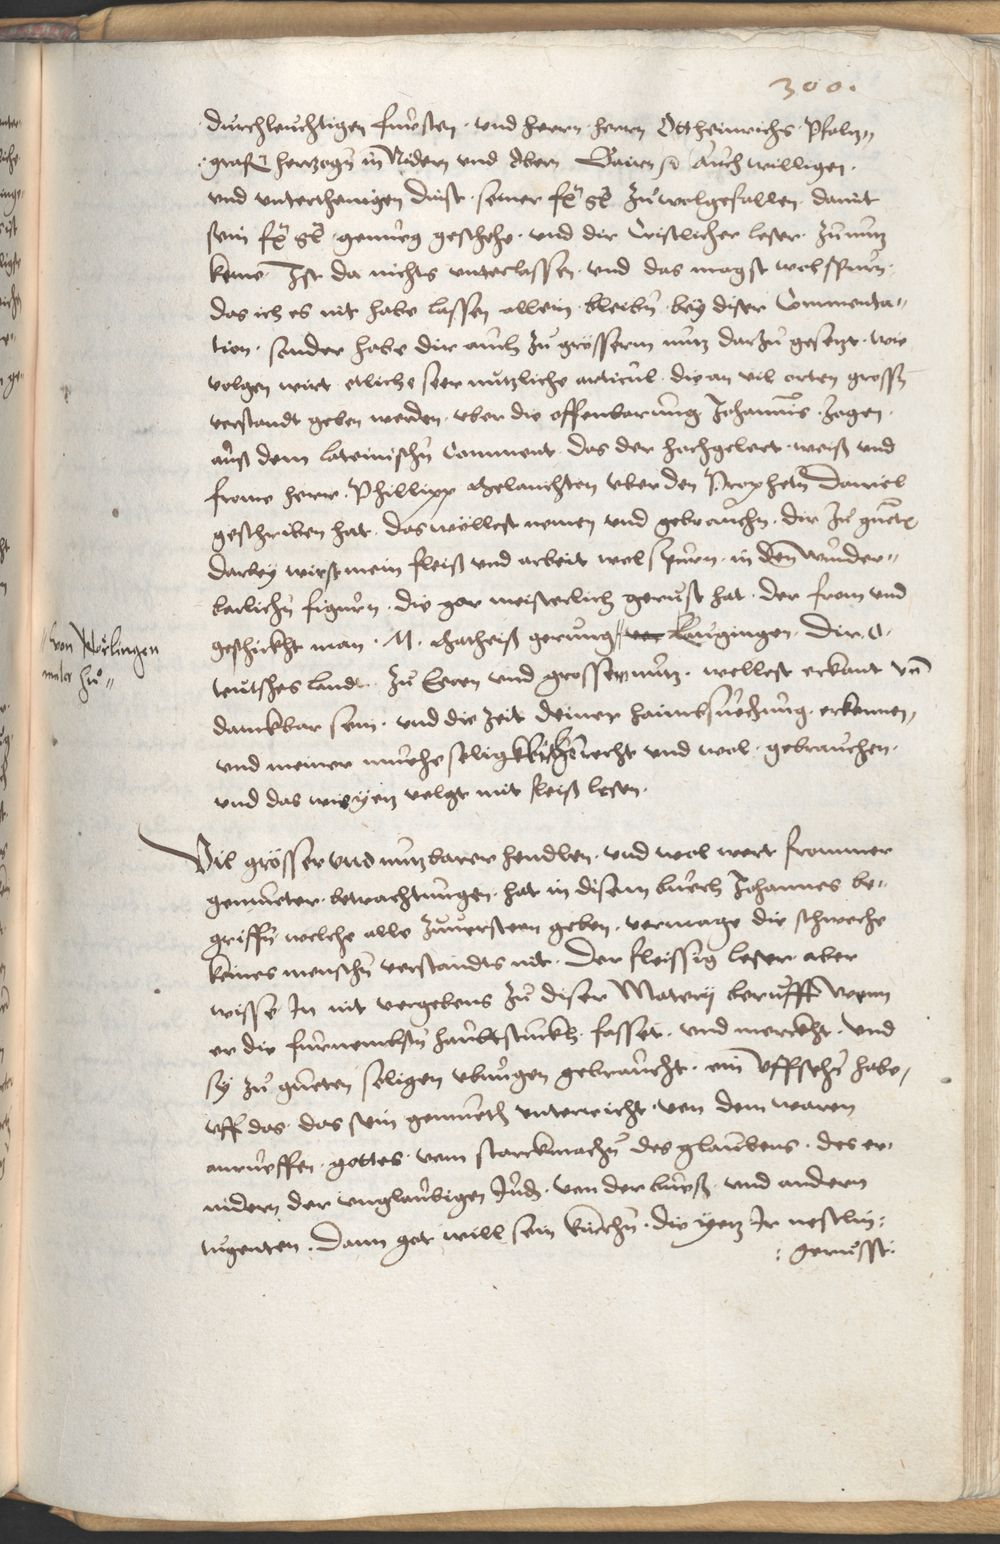 300.
durchleuchtigen fürsten · und herrn · herrn Ottheinrichs Pfaltz„
graff hertzogen in Nidern und Obern Bairn auch willigen ·
und unterthenigen dinst · seiner zu wolgefallen damit
sein genüeg geschehe · und dir Cristlicher leser · zu nutz
keme · Ist da nichts unterlassen · und das magst wol spürn ·
das ich es nit habe lassen allein bleiben bey diser Commenta„
tion · sonder habe dir auch zu grösserm nutz darzu gesetzt · wie
volgen wirt · etliche seer nutzliche articul · die an vil orten grossen
verstandt geben werden · uber die offenbarung Johannis ·
auß dem lateinischen Comment · das der hochgelert · weiß und
frome herr · Phillipp Melanchton uber den Propheten Daniel
geschriben hat · das wöllest nemen und gebrauchen · dir zu
darbey wirst mein fleiß und arbeit wol spürn · in den wunder„
barlichen figurn · die gar meisterlich gerust hat · der from und
geschickht man · M · Matheiß gerung Laugingen ·
von Nörlingen
maler zu„
teutsches landt · zu Eeren und grossem nutz · wellest erkant und
danckbar sein · und die zeit deiner haimbsuechung · erkennen„
und meiner muehe recht und wol · gebrauchen ·
und das wie yetz volgt mit fleiß lesen ·
Vil grösser und nutzbarer hendlen · und wol wert frommer
gemüeter · betrachtungen · hat in disem buech Johannes be„
griffen · welche alle zuversteen geben · vermage die schweche
keines menschen verstandts nit · Der fleissig leser aber
wisse In nit vergebens zu diser Matery berufft Wenn
er die fürnembsten haubtstuckh · fasset · und merckht · und
sy zu gueten seligen ubungen gebraucht · ein uffsehen habe„
uff das · das sein gemueth unterricht · von dem waren
anrueffen · gottes · vom starckmachen des glaubens · des er„
nidern der unglaubigen Juden · von der bueß · und andern
tugenten · Dann got will sein kirchen · die yetz Ir nestlin :
: gerusst :